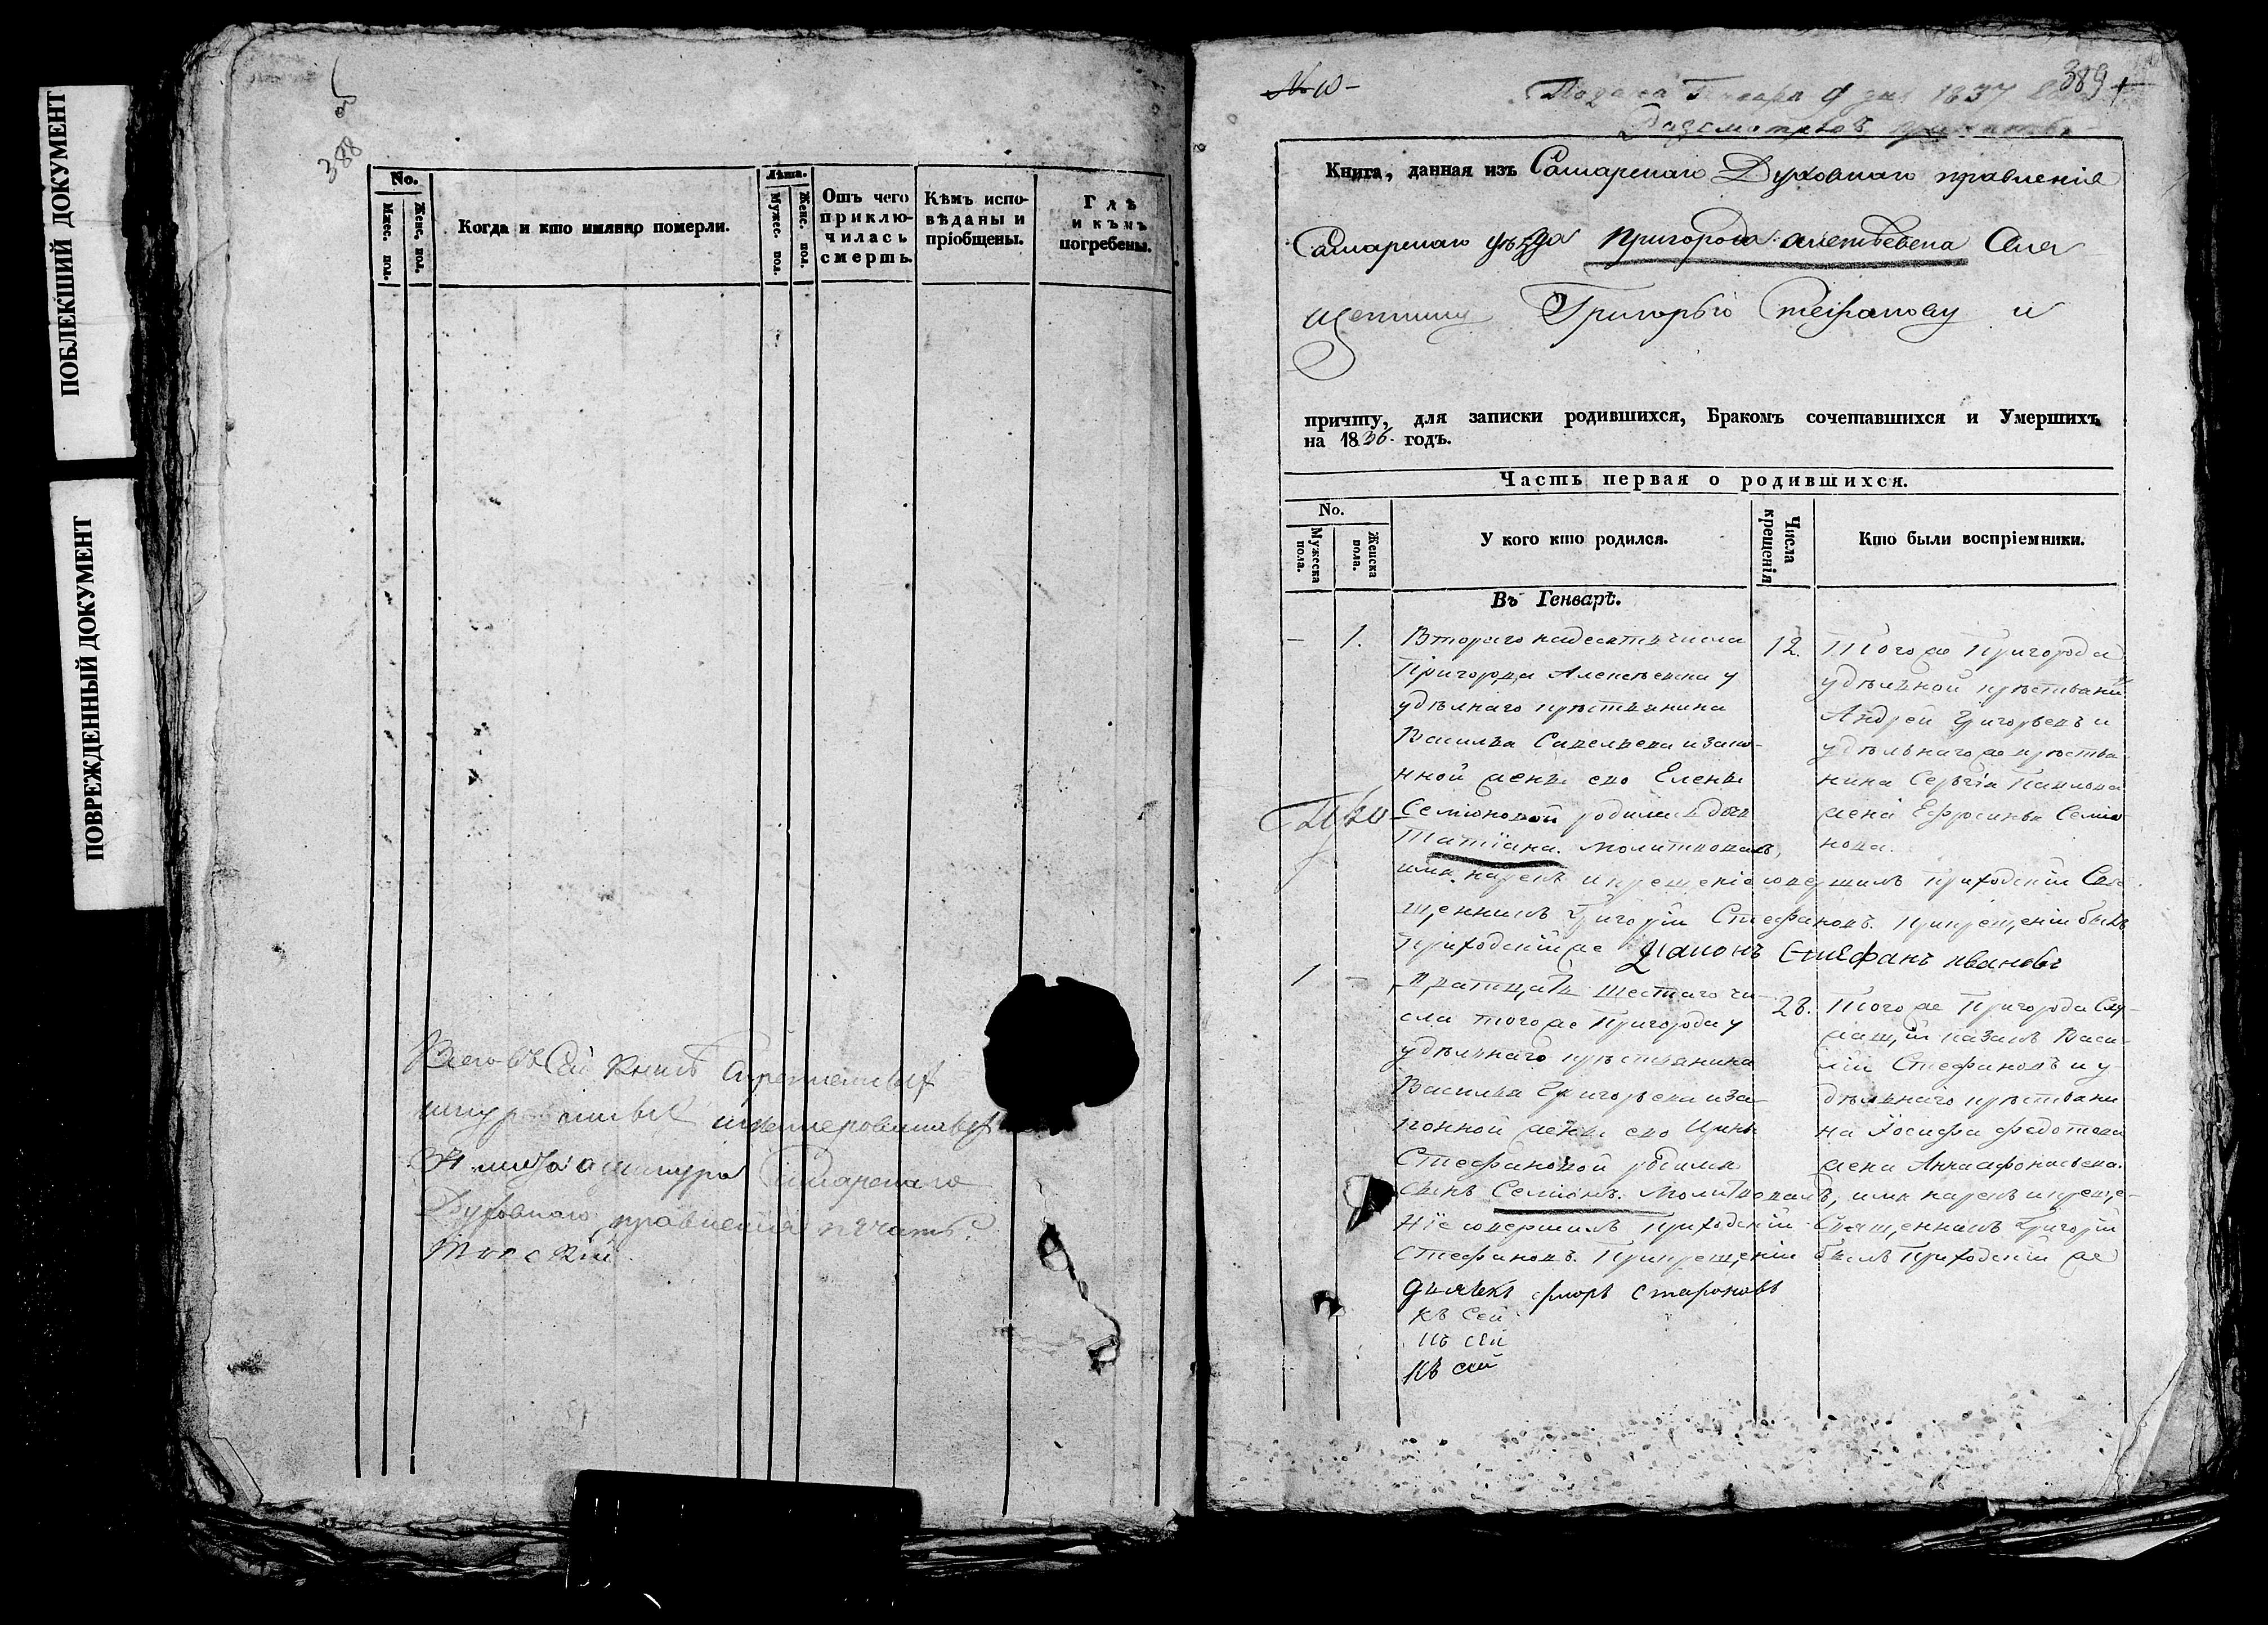 ПОБЛЕКШИЙ ДОКУМЕНТ
ПОВРЕЖДЕННЫЙ ДОКУМЕНТ
388 об
No.
Мжес. пол.
Женс. пол.
Когда и кто имянно померли.
Лѣта.
Мужес. пол.
Женс. пол.
Отъ чего приклю-
чилась
смерть.
Кѣмъ испо-
вѣданы и
пріобщены.
Гдѣ
и кѣмъ
погребены.
Всего въ сей книгѣ скрепленныхъ
шнурованныхъ инумерованныхъ
Самарскаго
Духовнаго правленія печать.
№ 10
389
Подана Генваря 9 дня 1837
Книга, данная изъ Самарскаго Духовнаго правленія
Самарскаго уѣзда пригорода алексѣевска Свя
щеннику Григорью Стефанову и
причту, для записки родившихся, Бракомъ сочетавшихся и Умершихъ
на 1836. годъ.
Часть первая о родившихся.
No.
Мужеска
пола.
Женска
пола.
У кого кто родился.
Числа
крещенія
Кто были воспріемники.
Въ Генварѣ.
1.
Втораго надесять числа
Пригорода Алексѣевска у
удѣлнаго крѣстьянина
Василья Савельева и зако-
нной жены его Елены
Семіоновой родилась дочь
Татіана. Молитвовалъ,
имя нарекъ и крещеніе совершилъ Приходскій Свя-
щенникъ Григорій Стефановъ. Прикрещеніи былъ
Приходскійже Диаконъ Стефанъ Ивановъ
12.
Тогоже Пригорода
удѣлной крѣстьянинъ
Андрей Григорьевъ и
удѣльнагоже крѣстья-
нина Сергѣя Павлова
жена Ефросинья Семіо-
нова.
1
Дватцать шестаго чи-
сла тогоже Пригорода у
удѣльнаго крѣстьянина
Василья Григорьева иза-
конной жены его
Стефановой родился
сынъ Семіонъ. Молитвовалъ, имя нарекъ икреще-
ніе совершилъ Приходскій Священникъ Григорій
Стефановъ. Прикрещеніи былъ Приходскій же
дьячекъ флоръ
28.
Тогоже Пригорода Слу-
жащій казакъ Васи-
лій Стефановъ и у-
дѣльнаго крѣстьяни
на Іосифа федотова
жена Анна афонасьева.
Къ сей
Къ сей
Къ сей